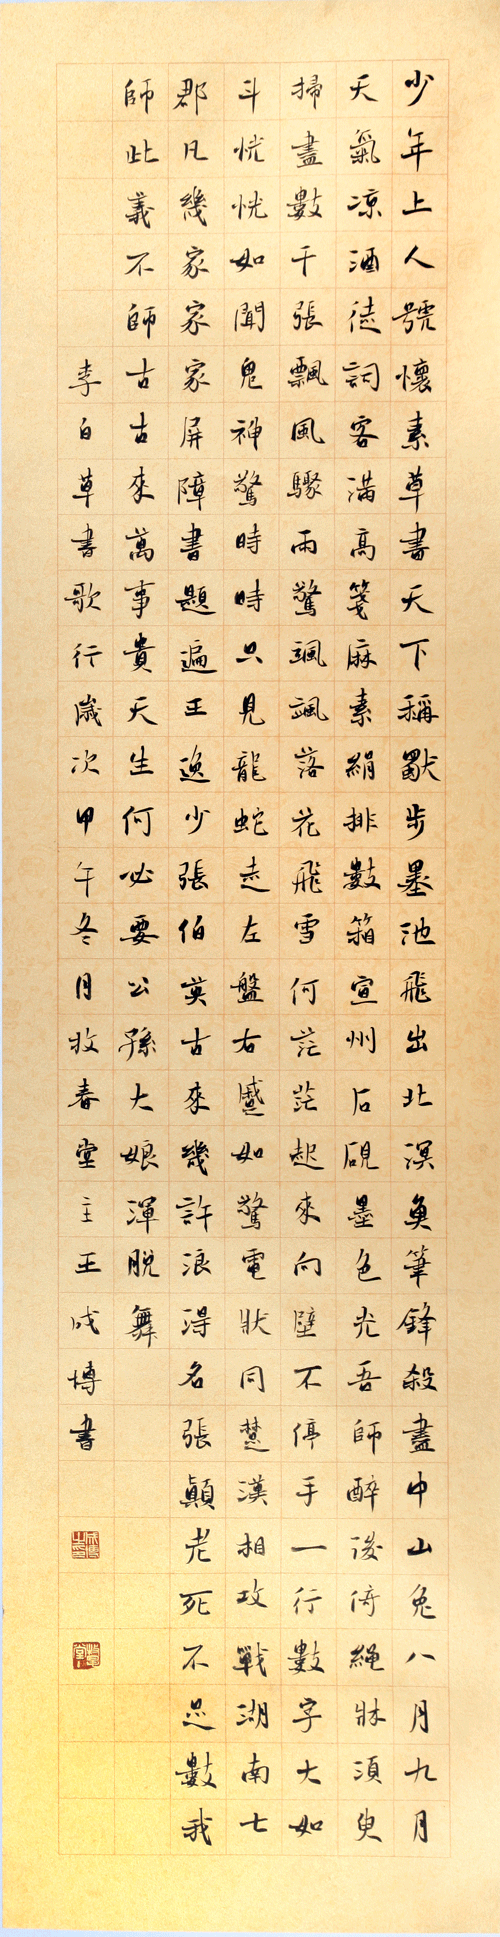 少年上人號懷素草書天下稱獨步墨池飛出北溟魚筆鋒殺盡中山兔八月九月
天氣凉酒徒詞客滿高箋麻素絹排數箱宣州石硯墨色光吾師醉後倚繩牀須臾
掃盡數千張飄風驟雨驚颯颯落花飛雪何茫茫起來向壁不停手一行數字大如
斗恍恍如聞鬼神驚時時只見龍蛇走左盤右蹙如驚電狀同楚漢相攻戰湖南七
郡凡幾家家家屏障書題遍王逸少張伯英古來幾許浪得名張顛老死不足數我
師此義不師古古來萬事貴天生何必要公孫大娘渾脫舞
李白草書歌行歲次甲午冬月牧春堂主王成博書